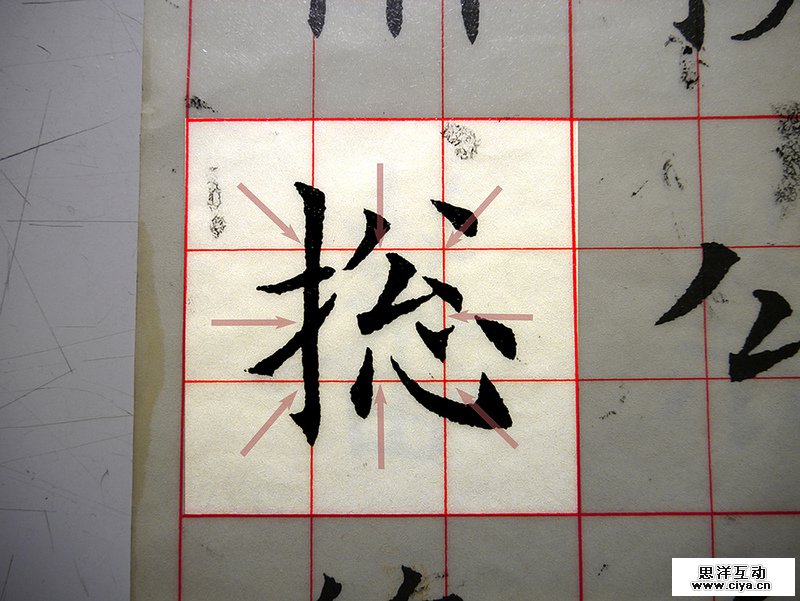 捴
公
思洋互动
www.ciya.cn